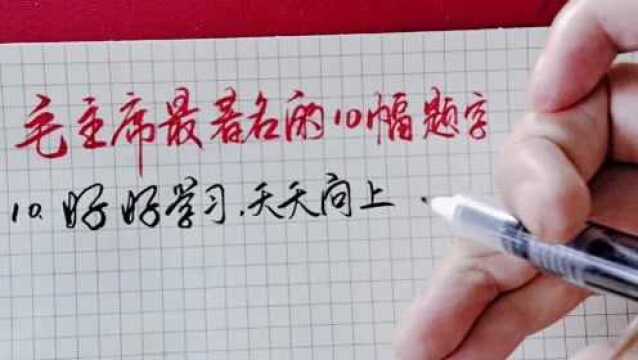 毛主席最著名的10幅题字
10. 好好学习,天天向上